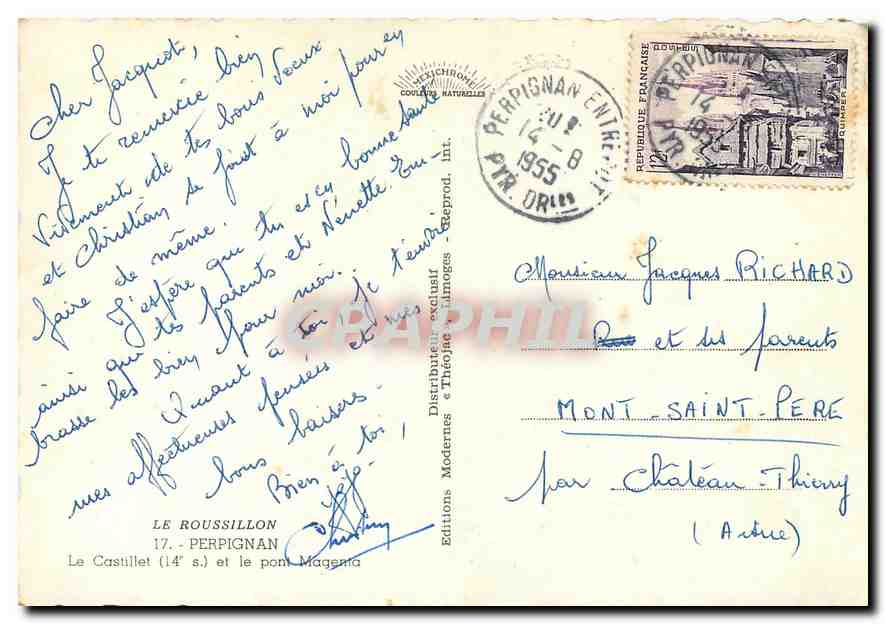 Cher Jacquot,
Je te remercie bien
vivement de tes bons voeux
et Christian se joint à moi pour en
faire de même.
J'espère que tu es en bonne santé
ainsi que tes parents et Nénette. Em-
brasse les bien pour moi.
Quant à toi je t'envoie
mes affectueuses pensées et mes
bons baisers.
Bien à toi,
LE ROUSSILLON
17. - PERPIGNAN
Le Castillet (14e s.) et le pont Magenta
MEXICHROME
COULEURS NATURELLES
Editions Modernes « Théojac » Limoges - Reprod. Int.
Distributeur exclusif
PERPIGNAN ENTREPOT
14 - 8
1955
PYR. ORles
REPUBLIQUE FRANÇAISE
POSTES
12F
QUIMPER
PERPIGNAN
14
PYR. OR
Monsieur Jacques RICHARD
et ses parents
MONT-SAINT-PÈRE
par Château-Thierry
(Aisne)
CPAPHIL